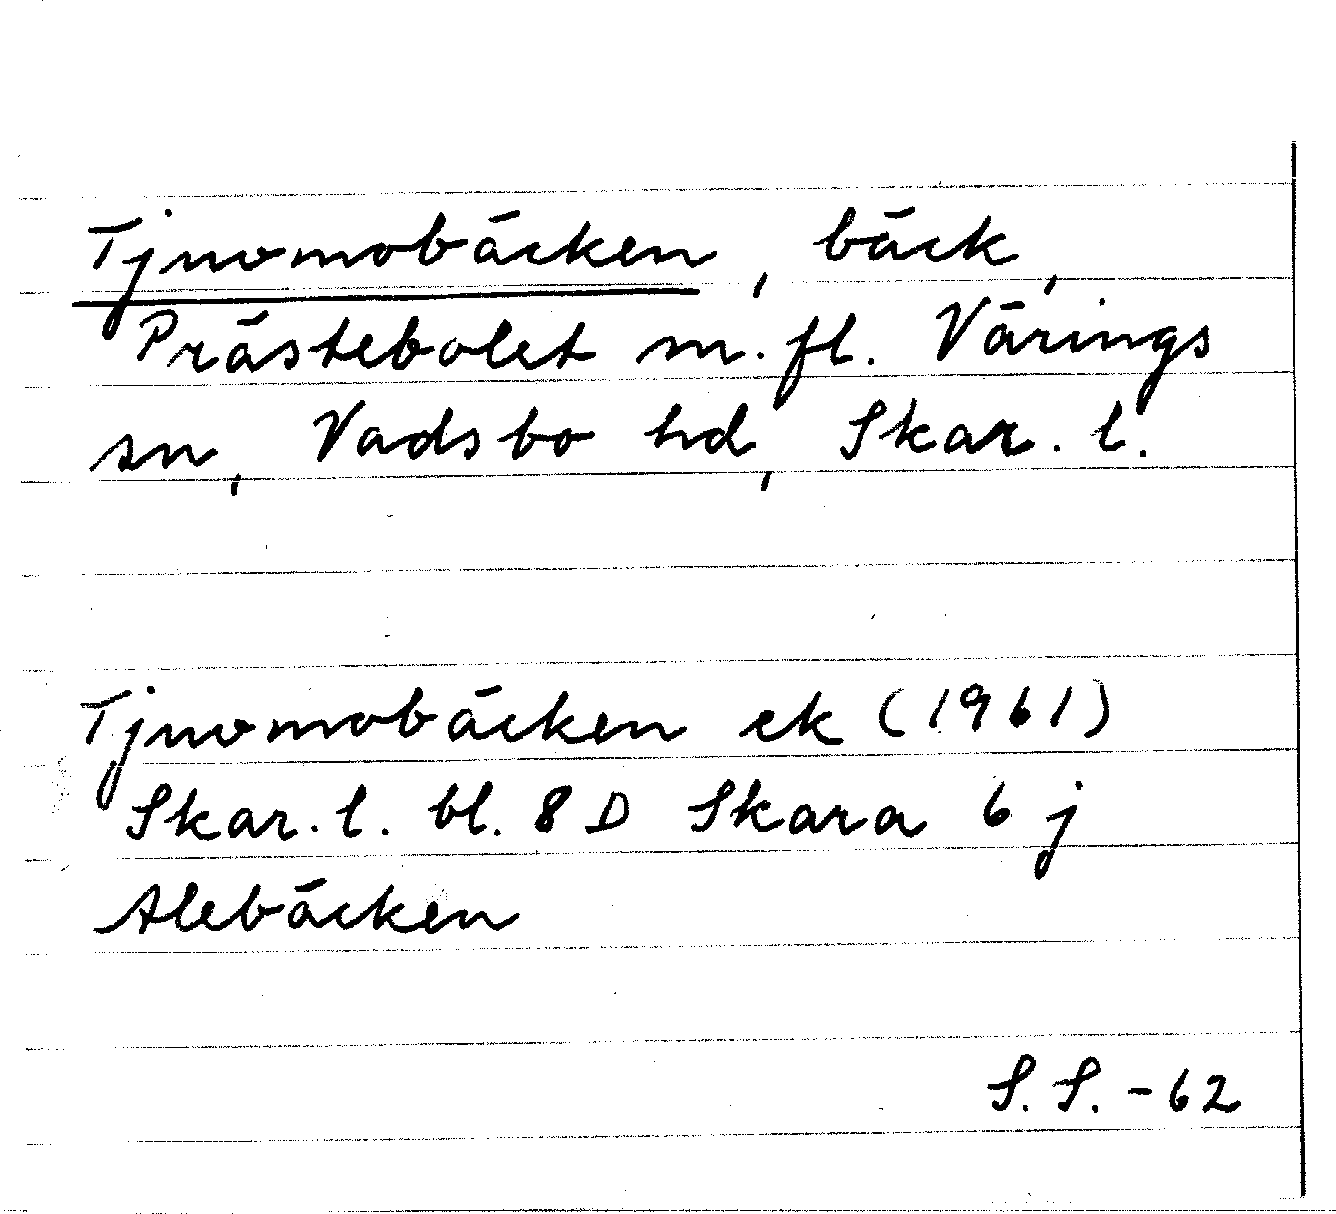 Tjuvomobäcken, bäck,
Prästebolet m.fl. Värings
sn, Vadsbo hd, Skar. l.
Tjuvomobäcken ek (1961)
Skar. l. bl. 8 D Skara 6 j
Alebäcken
S. S. -62